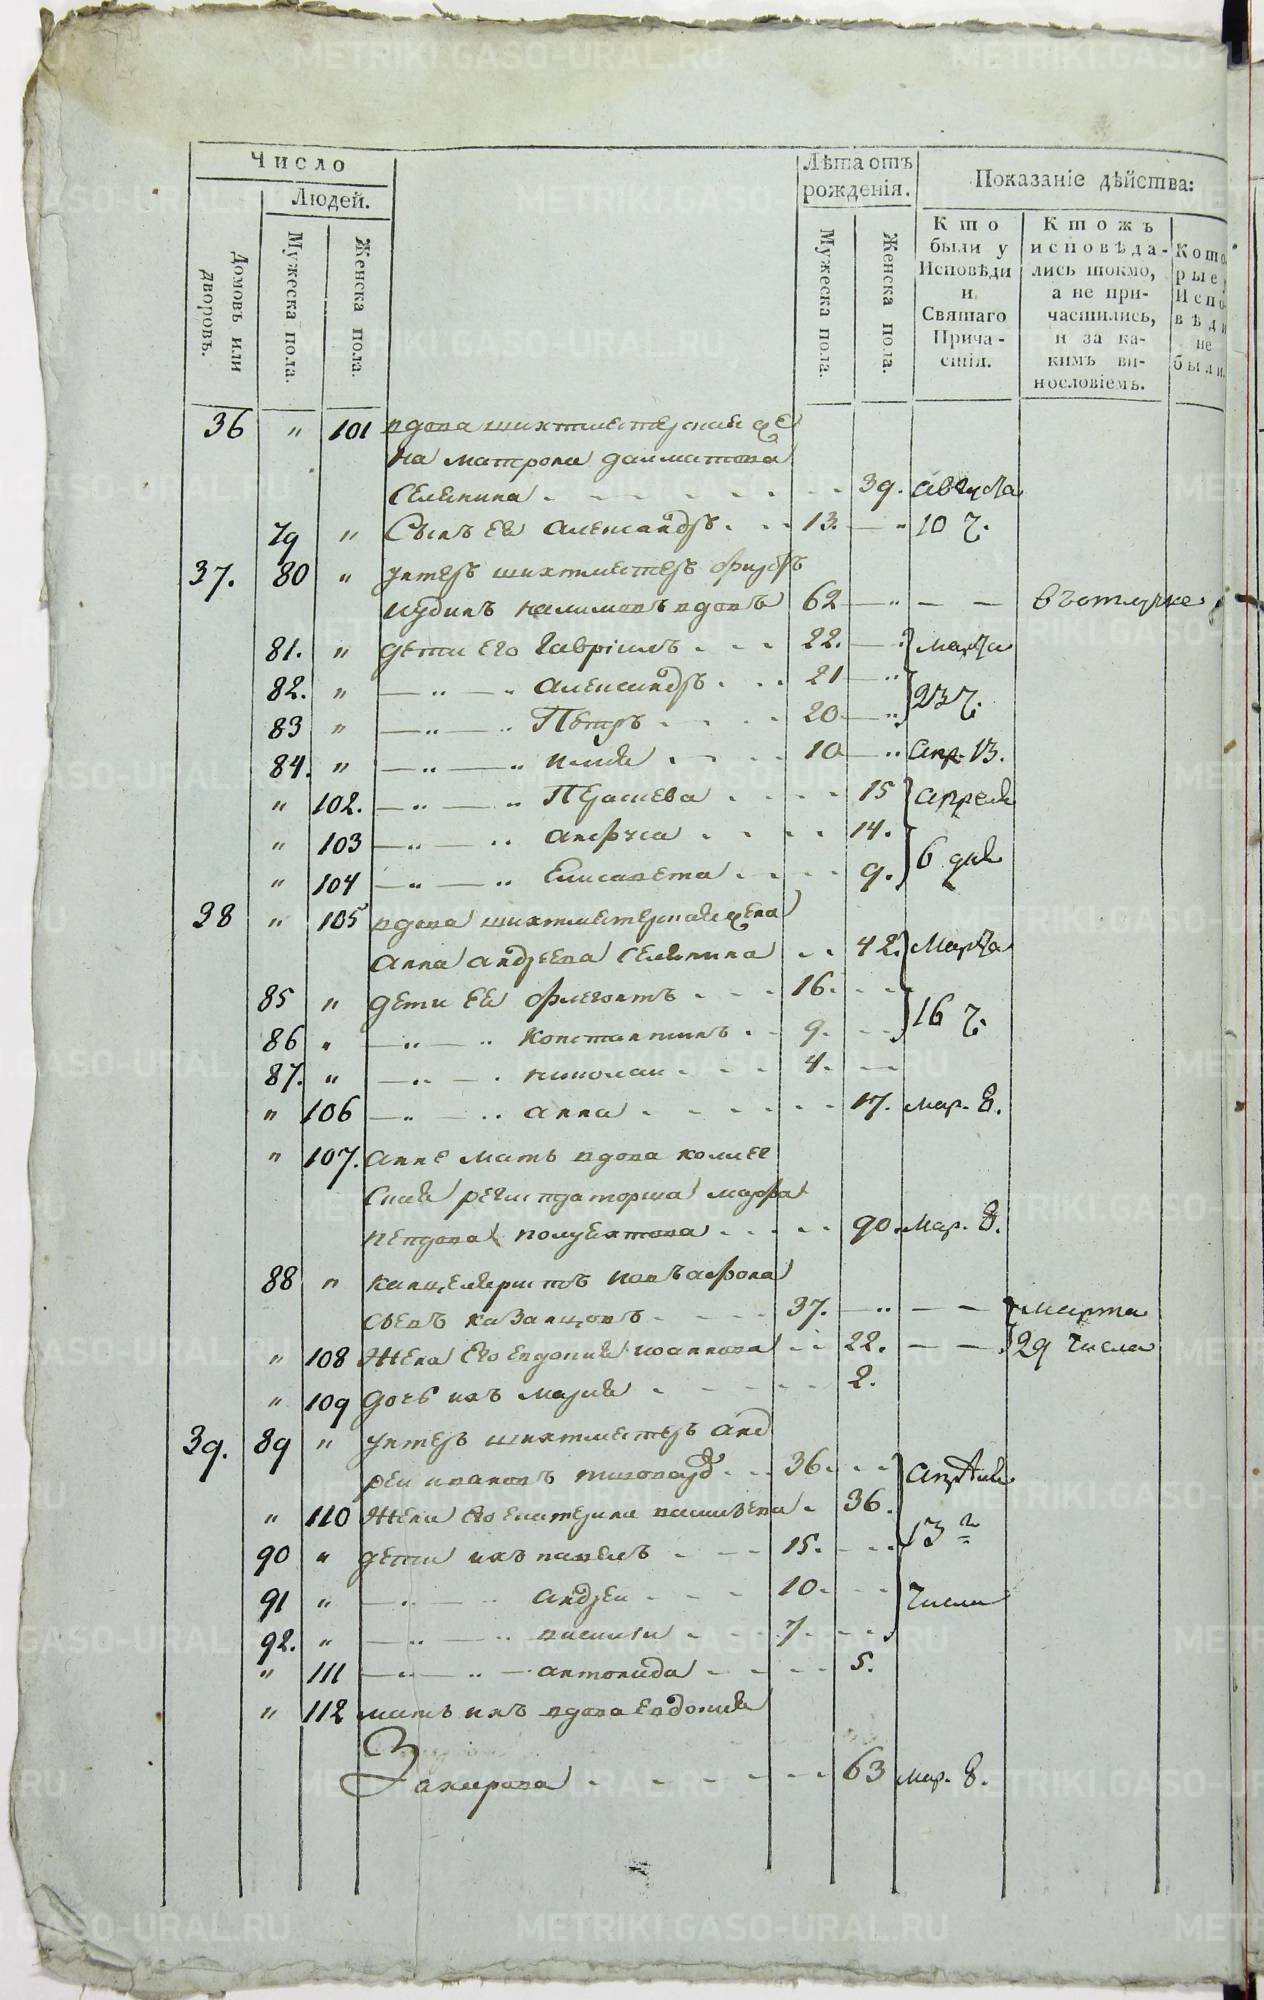 Число
Людей.
Домовъ или дворовъ.
Мужеска пола.
Женска пола.
Лѣта отъ рожденія.
Мужеска пола.
Женска пола.
Показаніе дѣйства:
Кто были у Исповѣди и Святаго Причастія.
Ктожъ исповѣдались токмо, а не причастились, и за какимъ винословіемъ.
Которые у Исповѣди не были.
36 " 101 вдова шихтмейстерская же
на матрона далматова
Селенина 39. августа
79 " Сынъ Ея Александръ 13. — " 10 ч.
37. 80 " унтеръ шихтмейстеръ
вдовъ 62 — " — — въ отлучке
81. " дети Его Гавріилъ 22. — марта
82. " — " — " Александръ 21 — " 23 ч.
83 " — " — " Петръ 20 — "
84. " — " — " илия 10 — " апр. 13.
" 102. — " — " Парасиева 15 апреля
" 103 — " — " анфуса 14. 6 дня
" 104 — " — " Елисавета 9.
38 " 105 вдова шихтмейстерская жена
Анна андреева Селенина 42. Марта
85 " дети Ея флегонтъ 16. 16 ч.
86 " — " — " константинъ 9.
87. " — " — " николаи 4.
" 106 — " — " анна 17. мар. 8.
" 107. анне мать вдова колле
ская регистраторша марфа
полуехтова 90. мар. 8.
88 " канцеляристъ
сынъ казанцовъ 37. — " — — марта
" 108 Жена Его евдокия иоаннова 22. — — 29 числа
" 109 дочь ихъ мария 2.
39. 89 " унтеръ шихтмейстеръ анд
реи ивановъ 36. апреля
" 110 Жена Его екатерина васильева 36. 13 г
90 " дети ихъ павелъ 15.
91 " — " — " андреи 10. числа
92. " — " — " василии 7.
" 111 — " — " — антонида 5.
" 112 мать ихъ вдова евдокия
Захарова 63 мар. 8.
METRIKI.GASO-URAL.RU